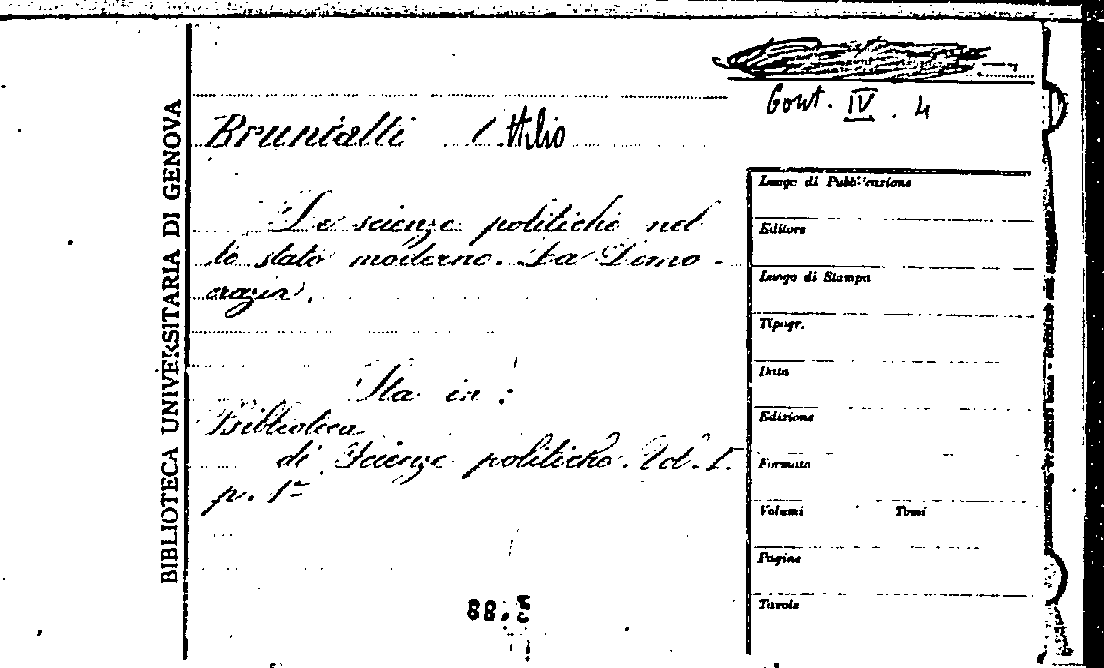 BIBLIOTECA UNIVERSITARIA DI GENOVA
Gont. IV. 4
Brunialti Attilio
Le scienze politiche nel
lo stato moderno. La Demo-
crazia.
Sta in:
Biblioteca
di Scienze politiche. Vol. I.
p. 1ª
Luogo di Pubblicazione
Editore
Luogo di Stampa
Tipogr.
Data
Edizione
Formato
Volumi Tomi
Pagine
Tavole